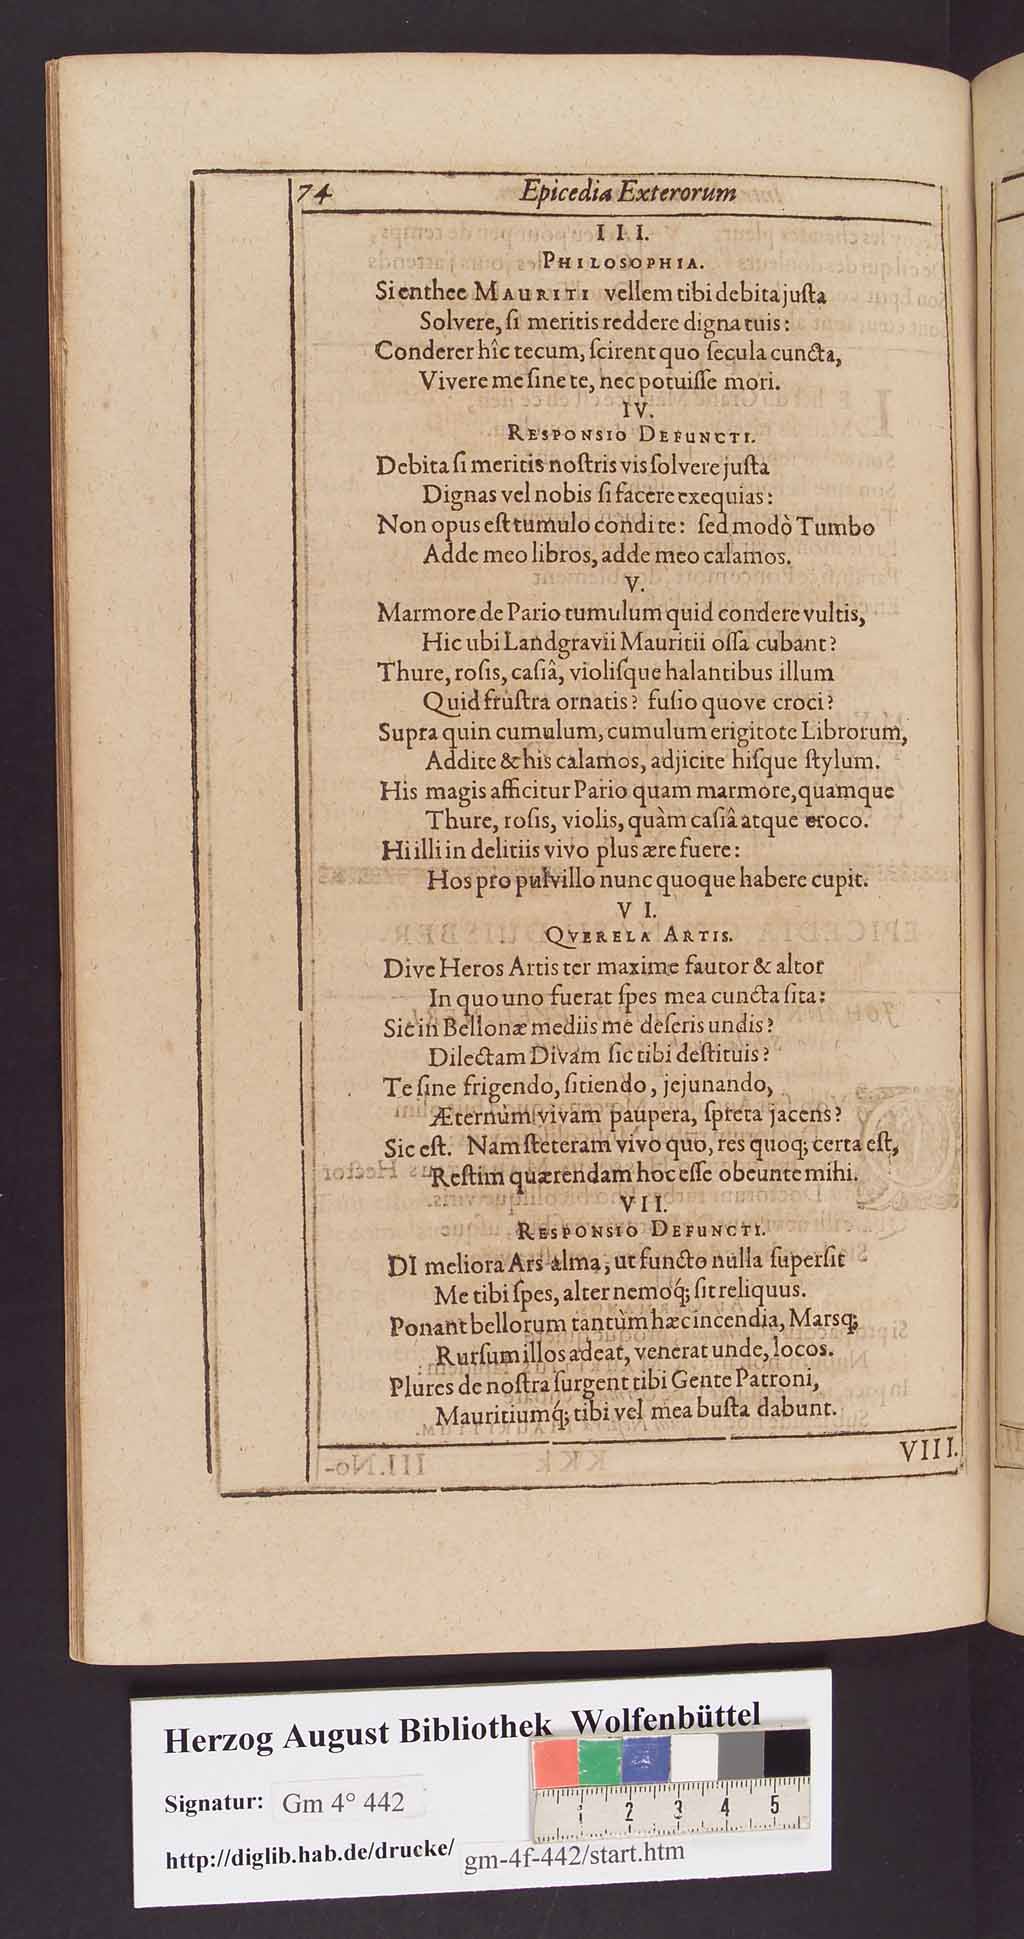 74 Epicedia Exterorum
III.
PHILOSOPHIA.
Si enthee MAURITI vellem tibi debita juſta
Solvere, ſi meritis reddere digna tuis:
Conderer hîc tecum, ſcirent quo ſecula cuncta,
Vivere me ſine te, nec potuiſſe mori.
IV.
RESPONSIO DEFUNCTI.
Debita ſi meritis noſtris vis ſolvere juſta
Dignas vel nobis ſi facere exequias:
Non opus eſt tumulo condi te: ſed modò Tumbo
Adde meo libros, adde meo calamos.
V.
Marmore de Pario tumulum quid condere vultis,
Hic ubi Landgravii Mauritii oſſa cubant?
Thure, roſis, caſiâ, violiſque halantibus illum
Quid fruſtra ornatis? fuſio quove croci?
Supra quin cumulum, cumulum erigitote Librorum,
Addite & his calamos, adjicite hiſque ſtylum.
His magis afficitur Pario quàm marmore, quamque
Thure, roſis, violis, quàm caſiâ atque croco.
Hi illi in delitiis vivo plus ære fuere:
Hos pro pulvillo nunc quoque habere cupit.
VI.
QVERELA ARTIS.
Dive Heros Artis ter maxime fautor & altor
In quo uno fuerat ſpes mea cuncta ſita:
Sic in Bellonæ mediis me deſeris undis?
Dilectam Divam ſic tibi deſtituis?
Te ſine frigendo, ſitiendo, jejunando,
Æternùm vivam paupera, ſpreta jacens?
Sic eſt. Nam ſteteram vivo quo, res quoq; certa eſt,
Reſtim quærendam hoc eſſe obeunte mihi.
VII.
RESPONSIO DEFUNCTI.
DI meliora Ars alma, ut functo nulla ſuperſit
Me tibi ſpes, alter nemoq́; ſit reliquus.
Ponant bellorum tantùm hæc incendia, Marsq;
Rurſum illos adeat, venerat unde, locos.
Plures de noſtra ſurgent tibi Gente Patroni,
Mauritiumq́; tibi vel mea buſta dabunt.
VIII.
Herzog August Bibliothek Wolfenbüttel
Signatur: Gm 4° 442
http://diglib.hab.de/drucke/ gm-4f-442/start.htm
1 2 3 4 5